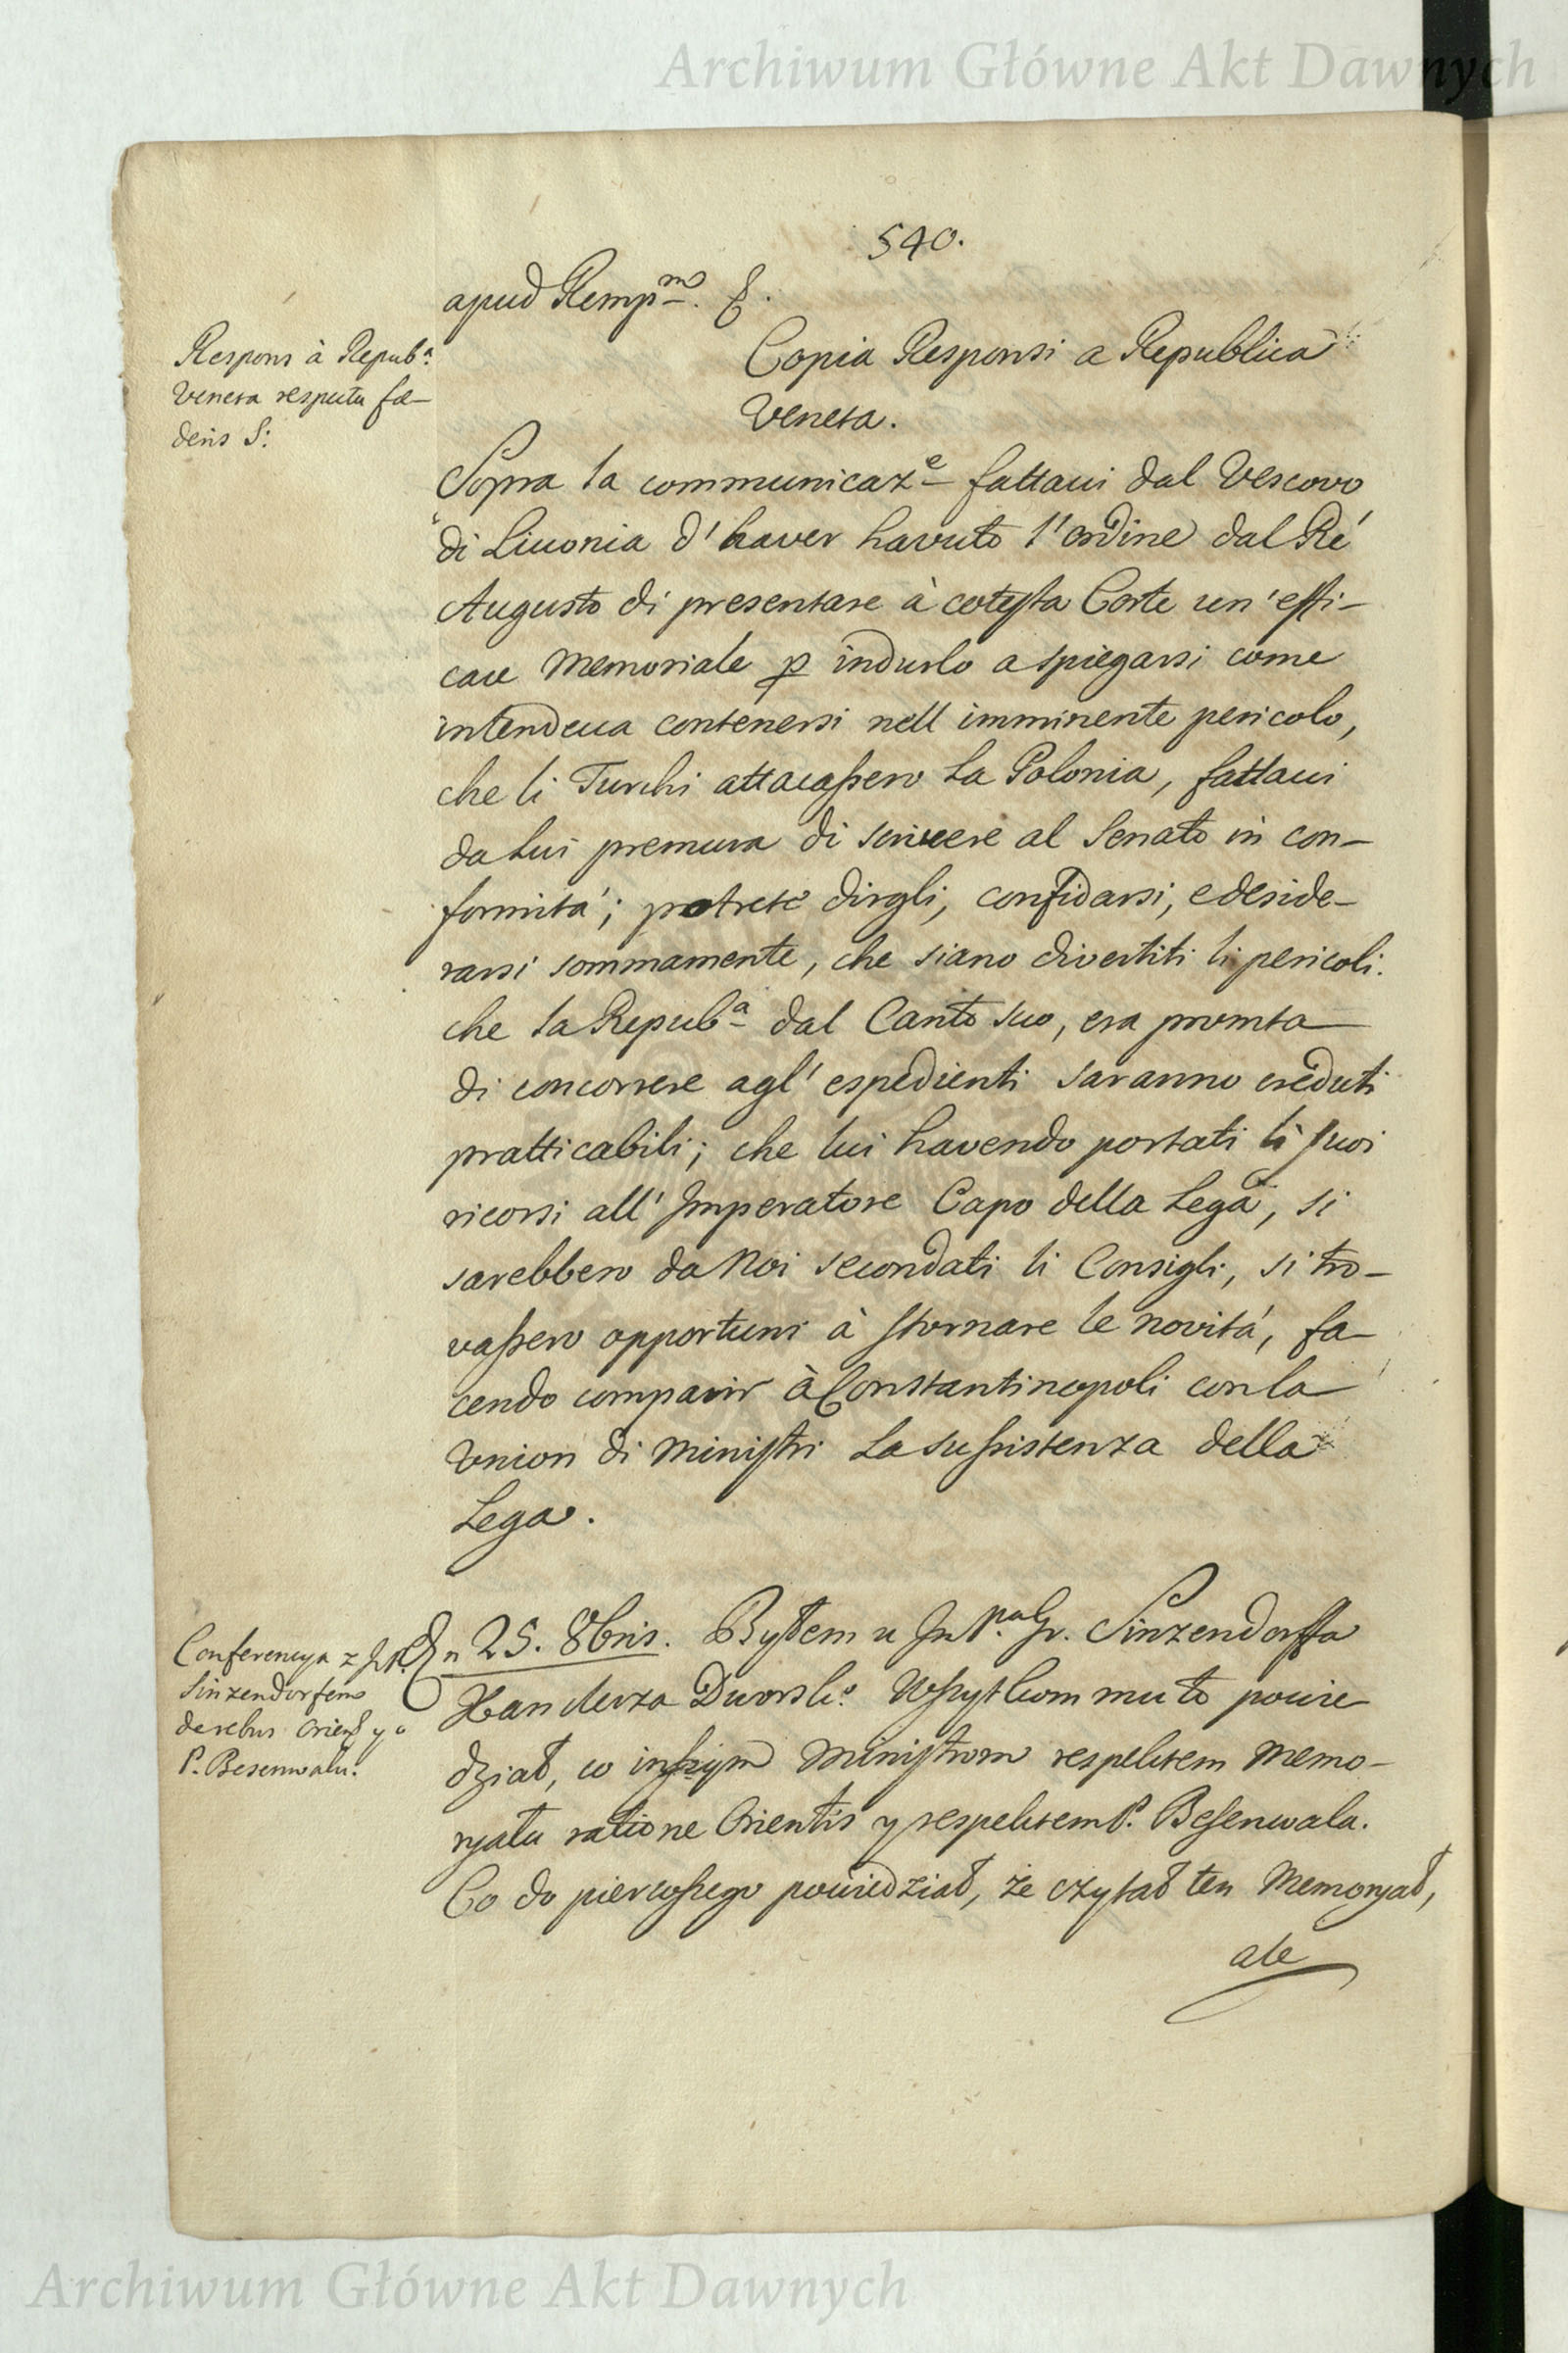 Archiwum Główne Akt Dawnych
540.
apud Remp<sup>m</sup>. &.
Respons à Repub<sup>a</sup>.
Veneta respectu fæ–
deris S:
Copia Responsi a Republica
Veneta.
Sopra la communicaz<sup>e</sup> fattaui dal Vescovo
di Liuonia d'haver havuto l'ordine dal Ré
Augusto di presentare à cotesta Corte un'effi–
cace Memoriale p indurlo a spiegarsi come
intendeua contenersi nell imminente pericolo,
che li Turchi attacassero La Polonia, fattaui
da Lui premura di scrivere al Senato in con–
formitá; potrete dirgli, confidarsi, e deside–
rarsi sommamente, che siano divertiti li pericoli.
che la Repub<sup>a</sup> dal Canto suo, era promta
di concorrere agl'espedienti saranno creduti
pratticabili; che lui havendo portati li suoi
ricorsi all'Imperatore Capo della Lega, si
sarebbero da Noi secondati li Consigli, si tro–
vassero opportuni à stornare le novitá, fa–
cendo comparir à Constantinopoli con la
Union di Ministri La sussistenza della
Lega.
Conferencya z
Sinzendorfem
de rebus Orient y o
P. Besenwalu.
Dn 25. 8bris. Byłem u Gr. Sinzendorffa
Kanclerza Dworsk<sup>o</sup>. Wszytkom mu to powie
dział, co inszym Ministrom respektem Memo–
ryału ratione Orientis y respektem P. Besenwala.
Co do pierwszego powiedział, że czytał ten Memoryał,
ale
Archiwum Główne Akt Dawnych